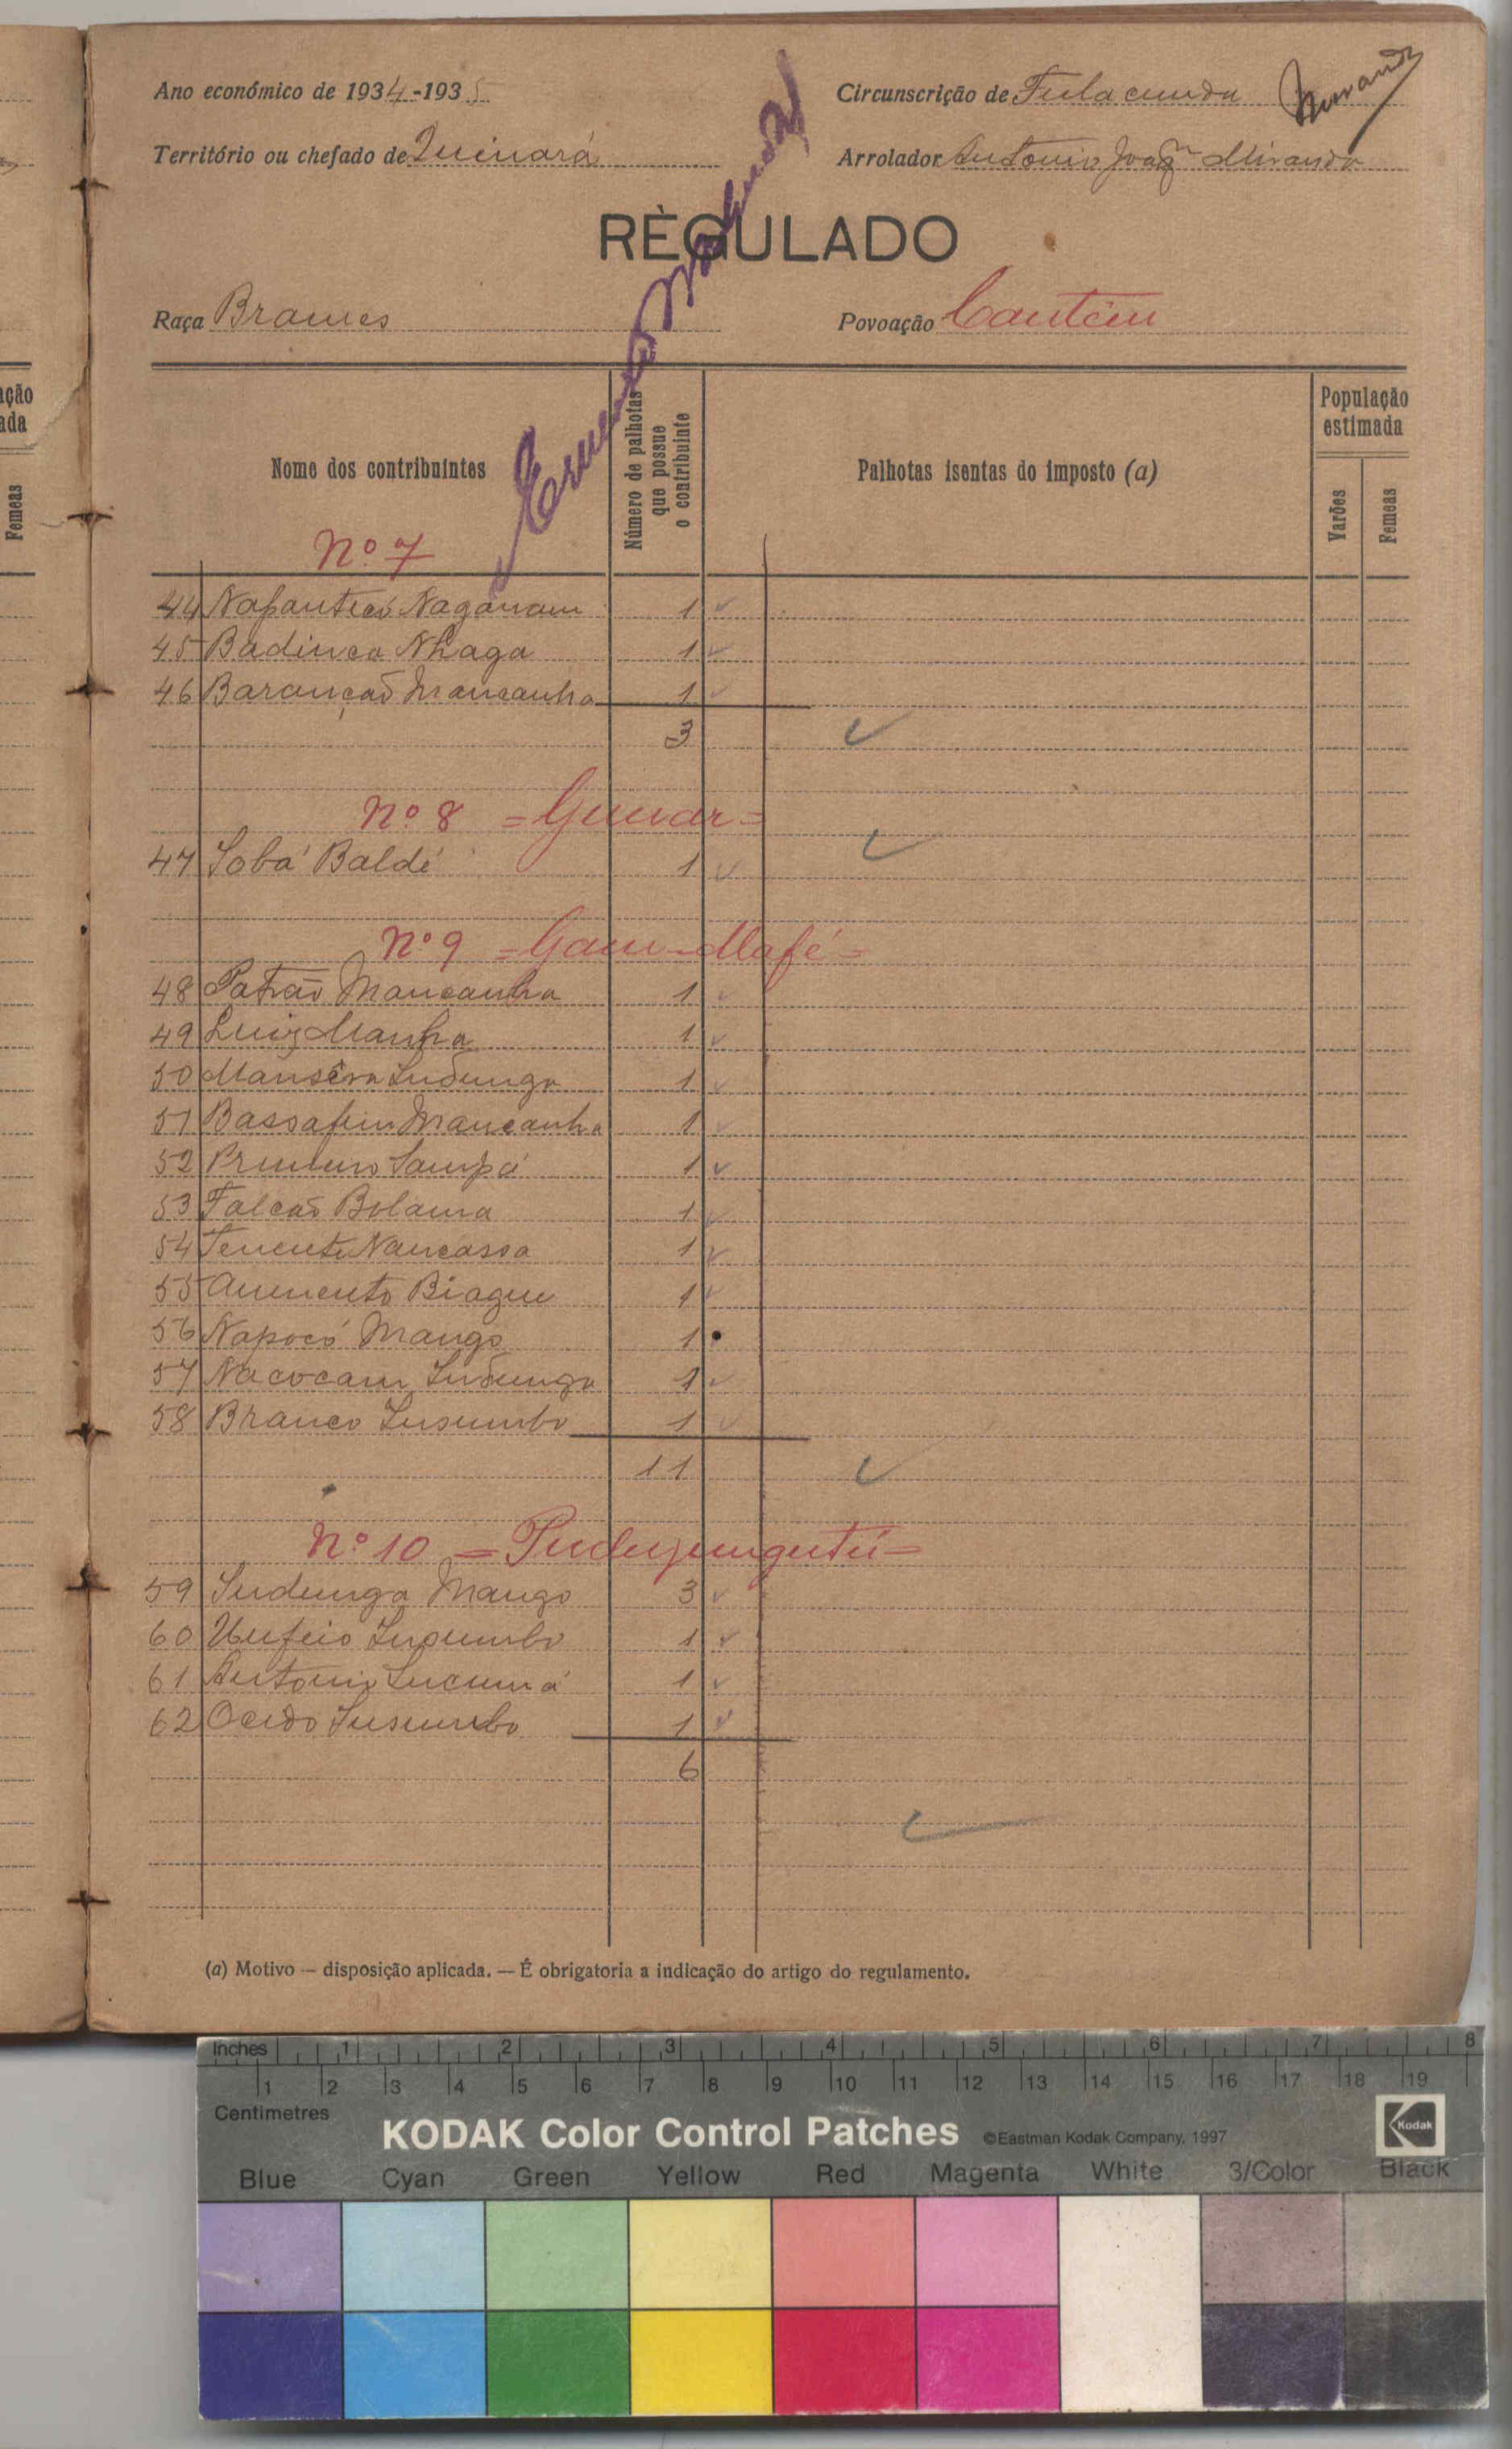 Ano económico de 1934-1935
Circunscrição de Fulacunda
Território ou chefado de Quinará
Arrolador António Joaqm Miranda
RÈGULADO
Raça Brames
Povoação Cantêm
Nome dos contribuintes
Número de palhotas que possue o contribuinte
Palhotas isentas do imposto (a)
População estimada
Varões
Femeas
Nº 7
44 Nagaram 1
45 Badinca Nhaga 1
46 Barancão Mancanha 1
3
Nº 8 = Guuar =
47 Sobá Baldé 1
Nº 9 = Gam-Mafé =
48 Patrão Mancanha 1
49 Luiz Manha 1
50 Indunga 1
51 Bassafim Mancanha 1
52 Primeiro Sampá 1
53 Falcão Bolama 1
54 Tenente Nancassa 1
55 Aumento Biague 1
56 Napocó Mango 1
57 Nacocam Indunga 1
58 Branco Insumbo 1
11
Nº 10
59 Indunga Mango 3
60 Insumbo 1
61 Antonio Lucumá 1
62 Insumbo 1
6
(a) Motivo — disposição aplicada. — É obrigatoria a indicação do artigo do regulamento.
ação
ada
Femeas
Inches 1 2 3 4 5 6 7 8
1 2 3 4 5 6 7 8 9 10 11 12 13 14 15 16 17 18 19
Centimetres
KODAK Color Control Patches ©Eastman Kodak Company, 1997
Kodak
Blue Cyan Green Yellow Red Magenta White 3/Color Black